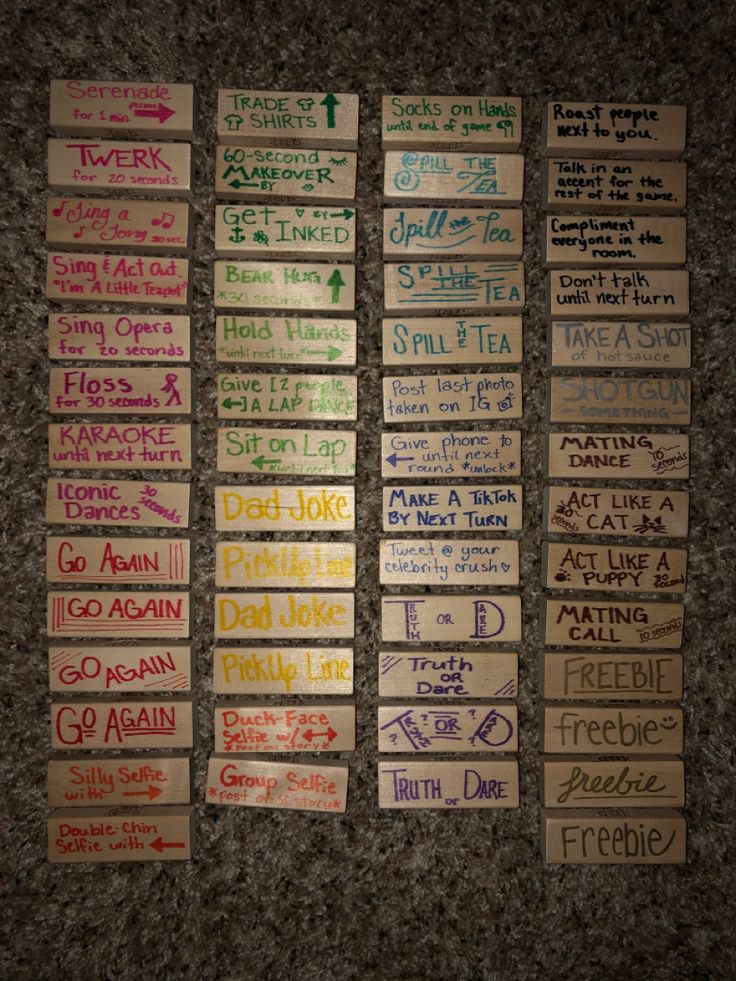 Serenade
person
for 1 min
TWERK
for 20 seconds
Sing a
Song 30 sec
Sing & Act Out
"I'm A Little Teapot"
Sing Opera
for 20 seconds
Floss
for 30 seconds
KARAOKE
until next turn
Iconic
Dances
30 seconds
Go AGAIN
GO AGAIN
GO AGAIN
GO AGAIN
Silly Selfie
with →
Double-Chin
Selfie with ←
TRADE
SHIRTS
60-second
MAKEOVER
← BY
Get ♡ BY →
INKED
BEAR HUG
*30 seconds*
Hold Hands
*until next turn* →
Give [2 people
A LAP DANCE
Sit on Lap
← *until next turn*
Dad Joke
PickUp Line
Dad Joke
PickUp Line
Duck-Face
Selfie w/ ↔
*Post on story*
Group Selfie
*Post on story*
Socks on Hands
until end of game
SPILL THE
TEA
Spill THE Tea
SPILL
THE
TEA
SPILL THE TEA
Post last photo
taken on IG
Give phone to
← until next
round *unlock*
MAKE A TikTok
BY NEXT TURN
Tweet @ your
celebrity crush ♡
TRUTH OR DARE
Truth
OR
Dare
TRUTH OR D
TRUTH or DARE
Roast people
next to you.
Talk in an
accent for the
rest of the game.
Compliment
everyone in the
room.
Don't talk
until next turn
TAKE A SHOT
of hot sauce
SHOTGUN
—SOMETHING—
MATING
DANCE
10 seconds
ACT LIKE A
CAT
seconds
ACT LIKE A
PUPPY
MATING
CALL
10 seconds
FREEBIE
freebie
freebie
Freebie